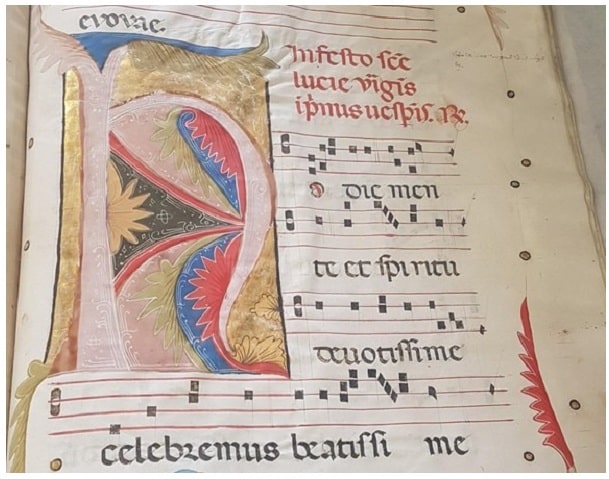 euouae.
In festo scē
lucie v̄gis
ip̄mis uesp̄is. R̄.
H
o die men
te et spiritu
deuotissime
celebremus beatissi me